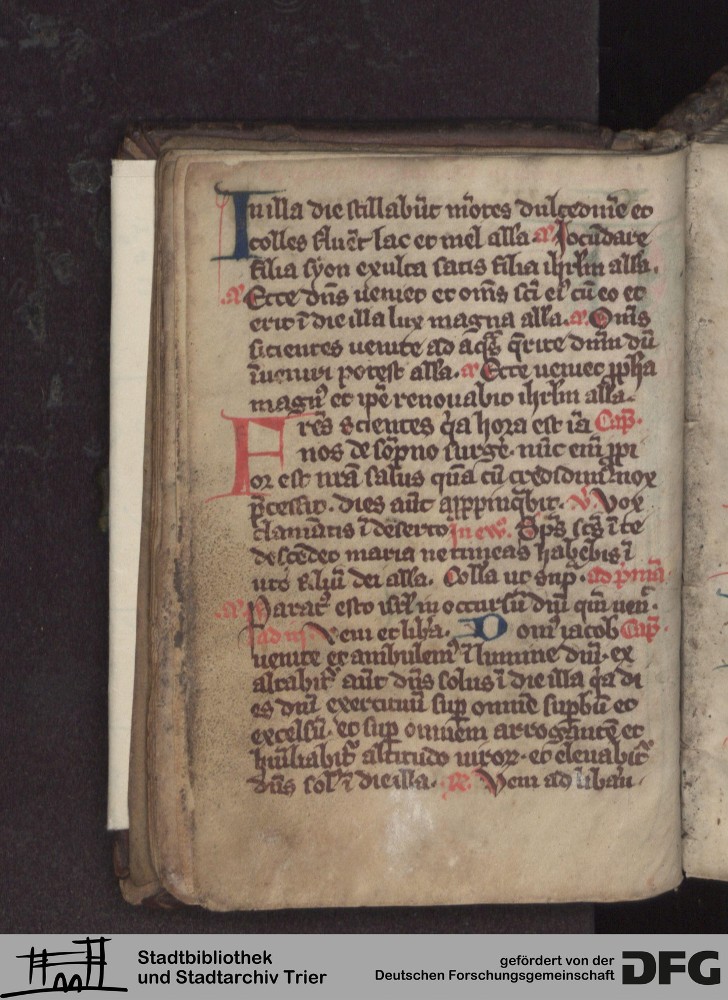 In illa die stillabūt mōtes dulcedinē et
colles fluēt lac et mel alła a Jocūdare
filia syon exulta satis filia ihrłm alła.
a Ecce dn̄s ueniet et om̄s sc̄i eiꝰ cū eo et
erit ī die illa lux magna alła. a Om̄s
sicientes uenite ad aq̄s q̄rite dn̄m dū
īueniri potest alła. a Ecce ueniet ꝓpħa
magnꝰ et ip̄e renouabit ihrłm alła.
Fres̄ scientes q̄a hora est iā Cap̄.
nos de sōpno surge᷑. nūc eni᷑ ꝓpi
or est nr̄a salus quā cū credidimꝰ nox
p̄cessit. dies aūt appropinq̄bit. v̄. Vox
clamātis ī deserto In ew̄. Sp̄s sc̄s ī te
descēdet maria ne timeas habebis ī
uto filiū dei alła. Colla ut sup̄. ad p̄mā
a Paratꝰ esto isrł in occursū dn̄i qm̄ ven̄.
ad iii Veni et lib̄a. Domꝰ iacob Cap̄.
uenite et ambulemꝰ ī lumine dn̄i. ex
altabit᷑ aūt dn̄s solus ī die illa q̄a di
es dn̄i exercituū sup̄ omnē sup̄bū et
excelsū. et sup̄ omnem arrogātē et
humiliabit᷑ altitudo uiroꝝ. et eleuabit᷑
dn̄s solꝰ ī die illa. R. Veni ad liban̄.
Stadtbibliothek
und Stadtarchiv Trier
gefördert von der
Deutschen Forschungsgemeinschaft
DFG